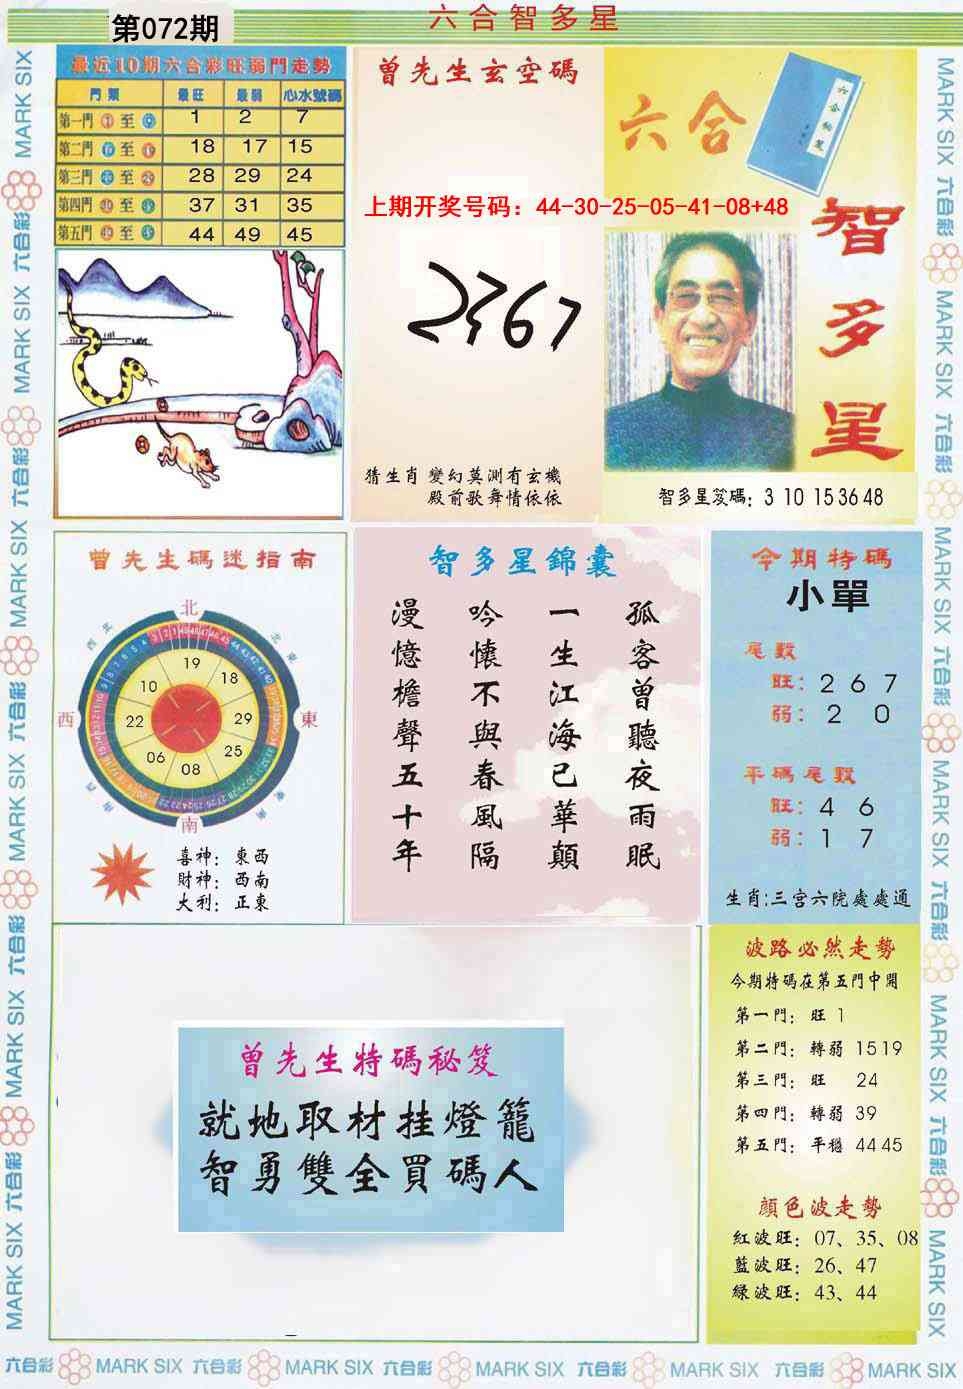 六合智多星
第072期
最近10期六合彩旺弱門走勢
門類 最旺 最弱 心水號碼
第一門 至 1 2 7
第二門 至 18 17 15
第三門 至 28 29 24
第四門 至 37 31 35
第五門 至 44 49 45
曾先生玄空碼
上期开奖号码：44-30-25-05-41-08+48
2367
猜生肖 變幻莫測有玄機
殿前歌舞情依依
六合
智多星
智多星笈碼：3 10 15 36 48
曾先生碼迷指南
北
西北
東北
西
東
西南
東南
南
19
18
29
25
08
06
22
10
喜神：東西
財神：西南
大利：正東
智多星錦囊
孤客曾聽夜雨眠
一生江海已華顛
吟懷不與春風隔
漫憶檐聲五十年
今期特碼
小單
尾數
旺：2 6 7
弱：2 0
平碼尾數
旺：4 6
弱：1 7
生肖:三宫六院處處通
曾先生特碼秘笈
就地取材挂燈籠
智勇雙全買碼人
波路必然走勢
今期特碼在第五門中開
第一門：旺 1
第二門：轉弱 15 19
第三門：旺 24
第四門：轉弱 39
第五門：平穩 44 45
顔色波走勢
紅波旺：07、35、08
藍波旺：26、47
綠波旺：43、44
六合彩 MARK SIX 六合彩 MARK SIX 六合彩 MARK SIX 六合彩 MARK SIX 六合彩 MARK SIX